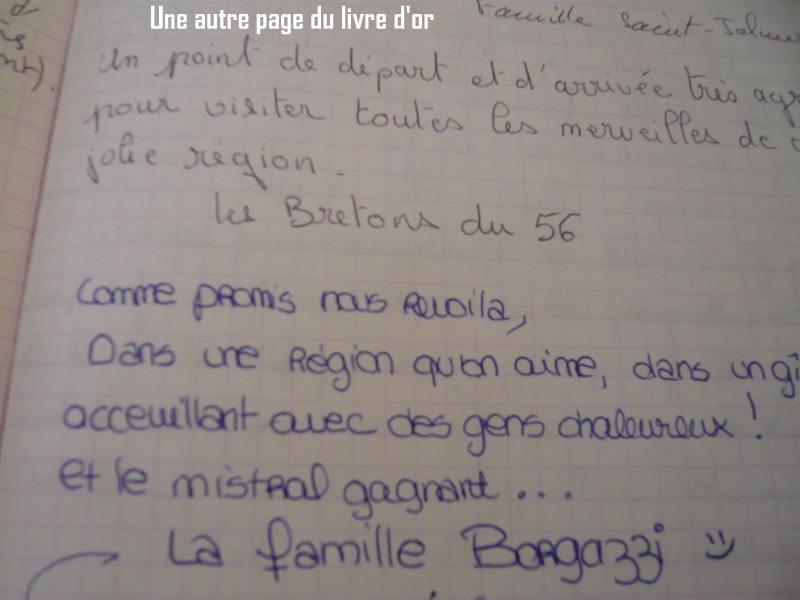 Une autre page du livre d'or
Famille Saint-Jalmes
un point de départ et d'arrivée très agr
pour visiter toutes les merveilles de c
jolie région.
Les Bretons du 56
Comme promis nous revoila,
Dans une Région qu'on aime, dans un gî
acceuillant avec des gens chaleureux !
et le mistral gagnant ...
La famille Borgazzi